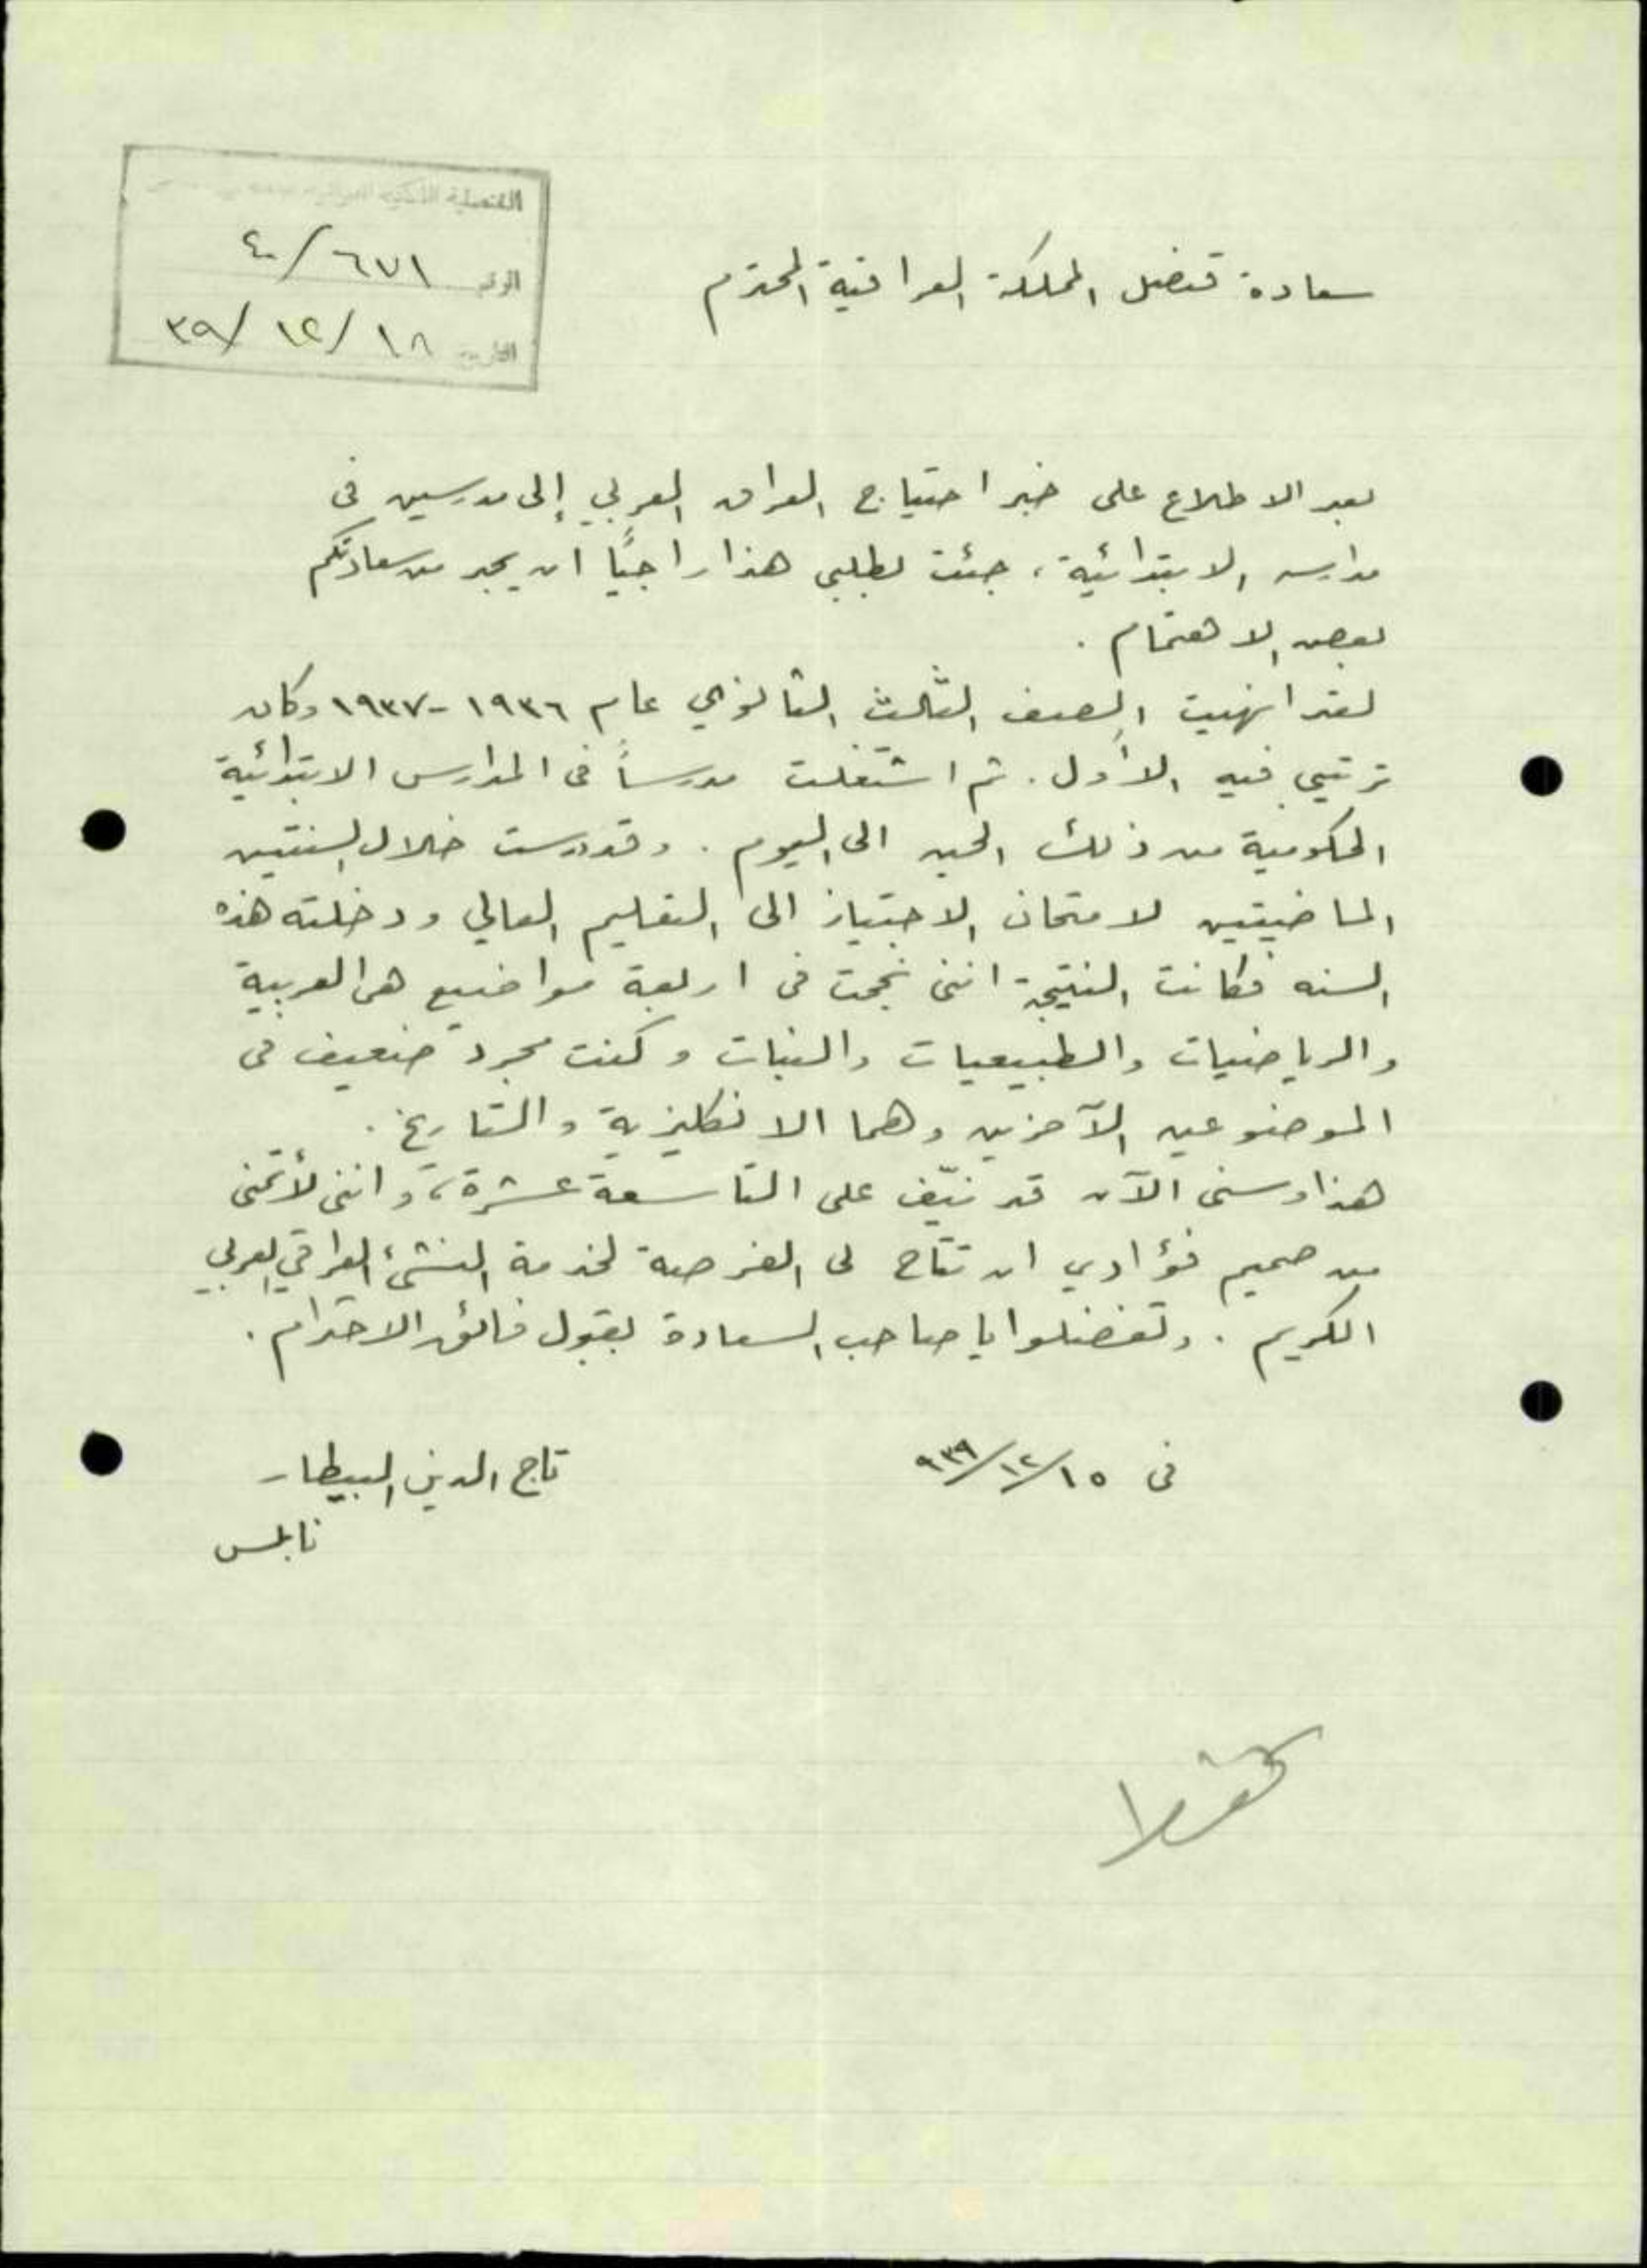 القنصلية الملكية العراقية
الرقم ٦٧١/٤٠
التاريخ ١٨/١٢/٣٩
سعادة قنصل المملكة العراقية المحترم
بعد الاطلاع على خبر احتياج العراق العربي إلى مدرسين في
مدارسه الابتدائية، جئت بطلبي هذا راجيًا ان يجد من سعادتكم
بعض الاهتمام.
لقد انهيت الصف الثالث الثانوي عام ١٩٣٦-١٩٣٧ وكان
ترتيبي فيه الأول. ثم اشتغلت مدرساً في المدارس الابتدائية
الحكومية من ذلك الحين الى اليوم. وقد درست خلال السنتين
الماضيتين لامتحان الاجتياز الى التعليم العالي ودخلته هذه
السنه فكانت النتيجة انني نجحت في اربعة مواضيع هي العربية
والرياضيات والطبيعيات والنبات وكنت مجرد ضعيف في
الموضوعين الآخرين وهما الانكليزية والتاريخ.
هذا وسني الآن قد نيّف على التاسعة عشرة، وانني لأتمنى
من صميم فؤادي ان تتاح لي الفرصة لخدمة النشئ العراقي العربي
الكريم. وتفضلوا يا صاحب السعادة بقبول فائق الاحترام.
في ١٥/١٢/٩٣٩
تاج الدين البيطار
نابلس